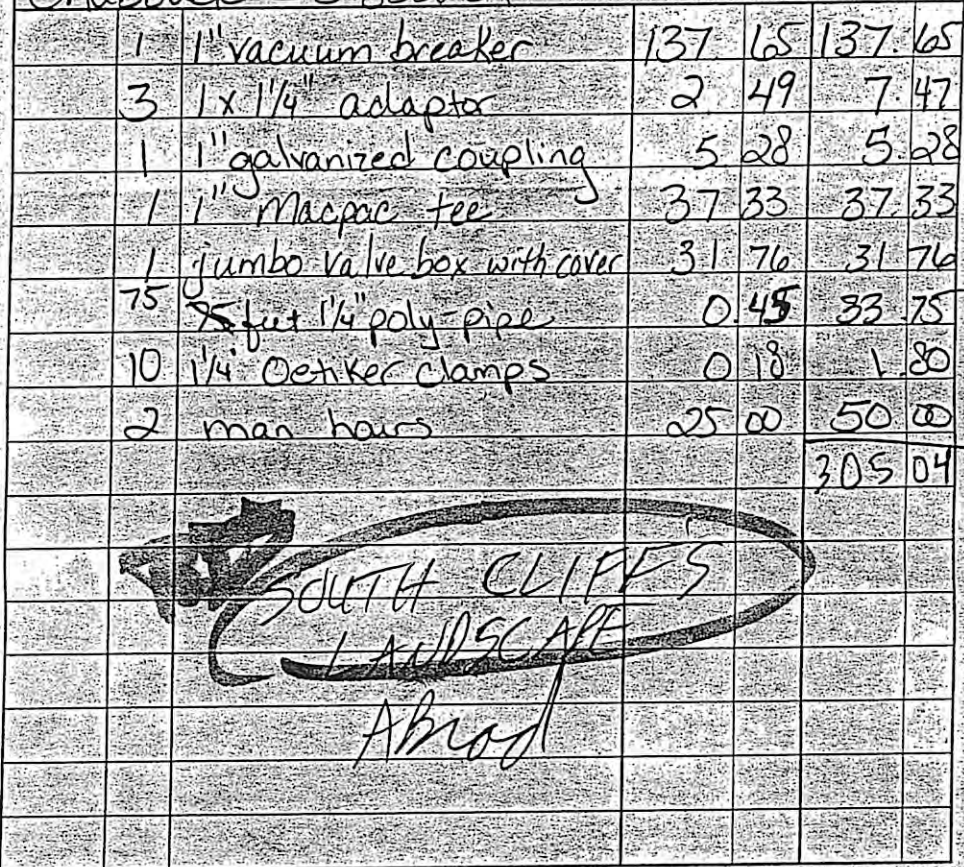 1 1" vacuum breaker 137 65 137. 65
3 1 x 1 1/4" adaptor 2 49 7. 47
1 1" galvanized coupling 5 28 5. 28
1 1" Macpac tee 37 33 37. 33
1 jumbo valve box with cover 31 76 31 76
75 feet 1 1/4" poly-pipe 0. 45 33. 75
10 1 1/4" Oetiker clamps 0 18 1. 80
2 man hours 25 00 50 00
305 04
SOUTH CLIFFS
LANDSCAPE